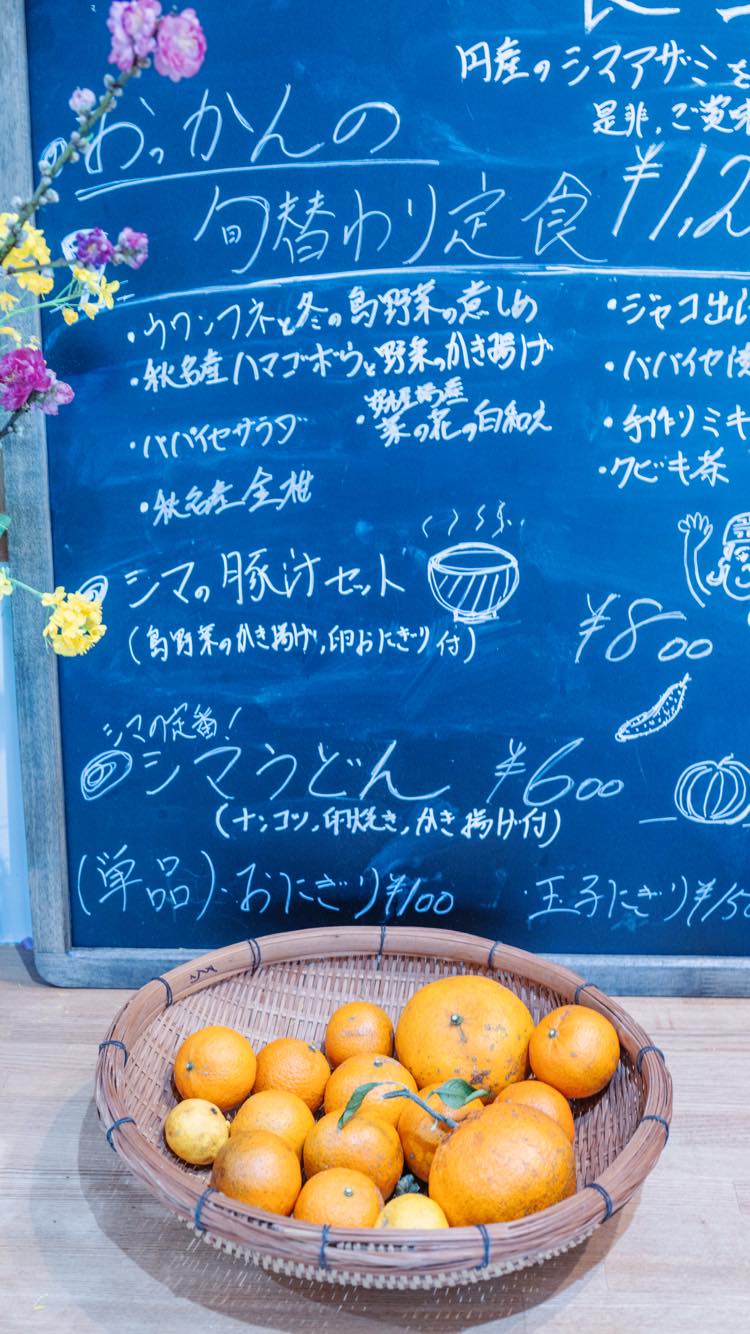 円産のシマアザミを
是非、ご賞味
おっかんの
旬替わり定食 ¥1,2
・ウワンフネと冬の島野菜の煮しめ
・ジャコ出
・秋名産ハマゴボウと野菜のかき揚げ
・パパイヤ
・パパイヤサラダ
・菜の花の白和え
・手作りミキ
・クビキ茶
・秋名産金柑
シマの豚汁セット
(島野菜のかき揚げ、卵おにぎり付)
¥800
シマの定番!
シマうどん ¥600
(ナンコツ、卵焼き、かき揚げ付)
(単品)・おにぎり¥100 ・玉子にぎり¥15